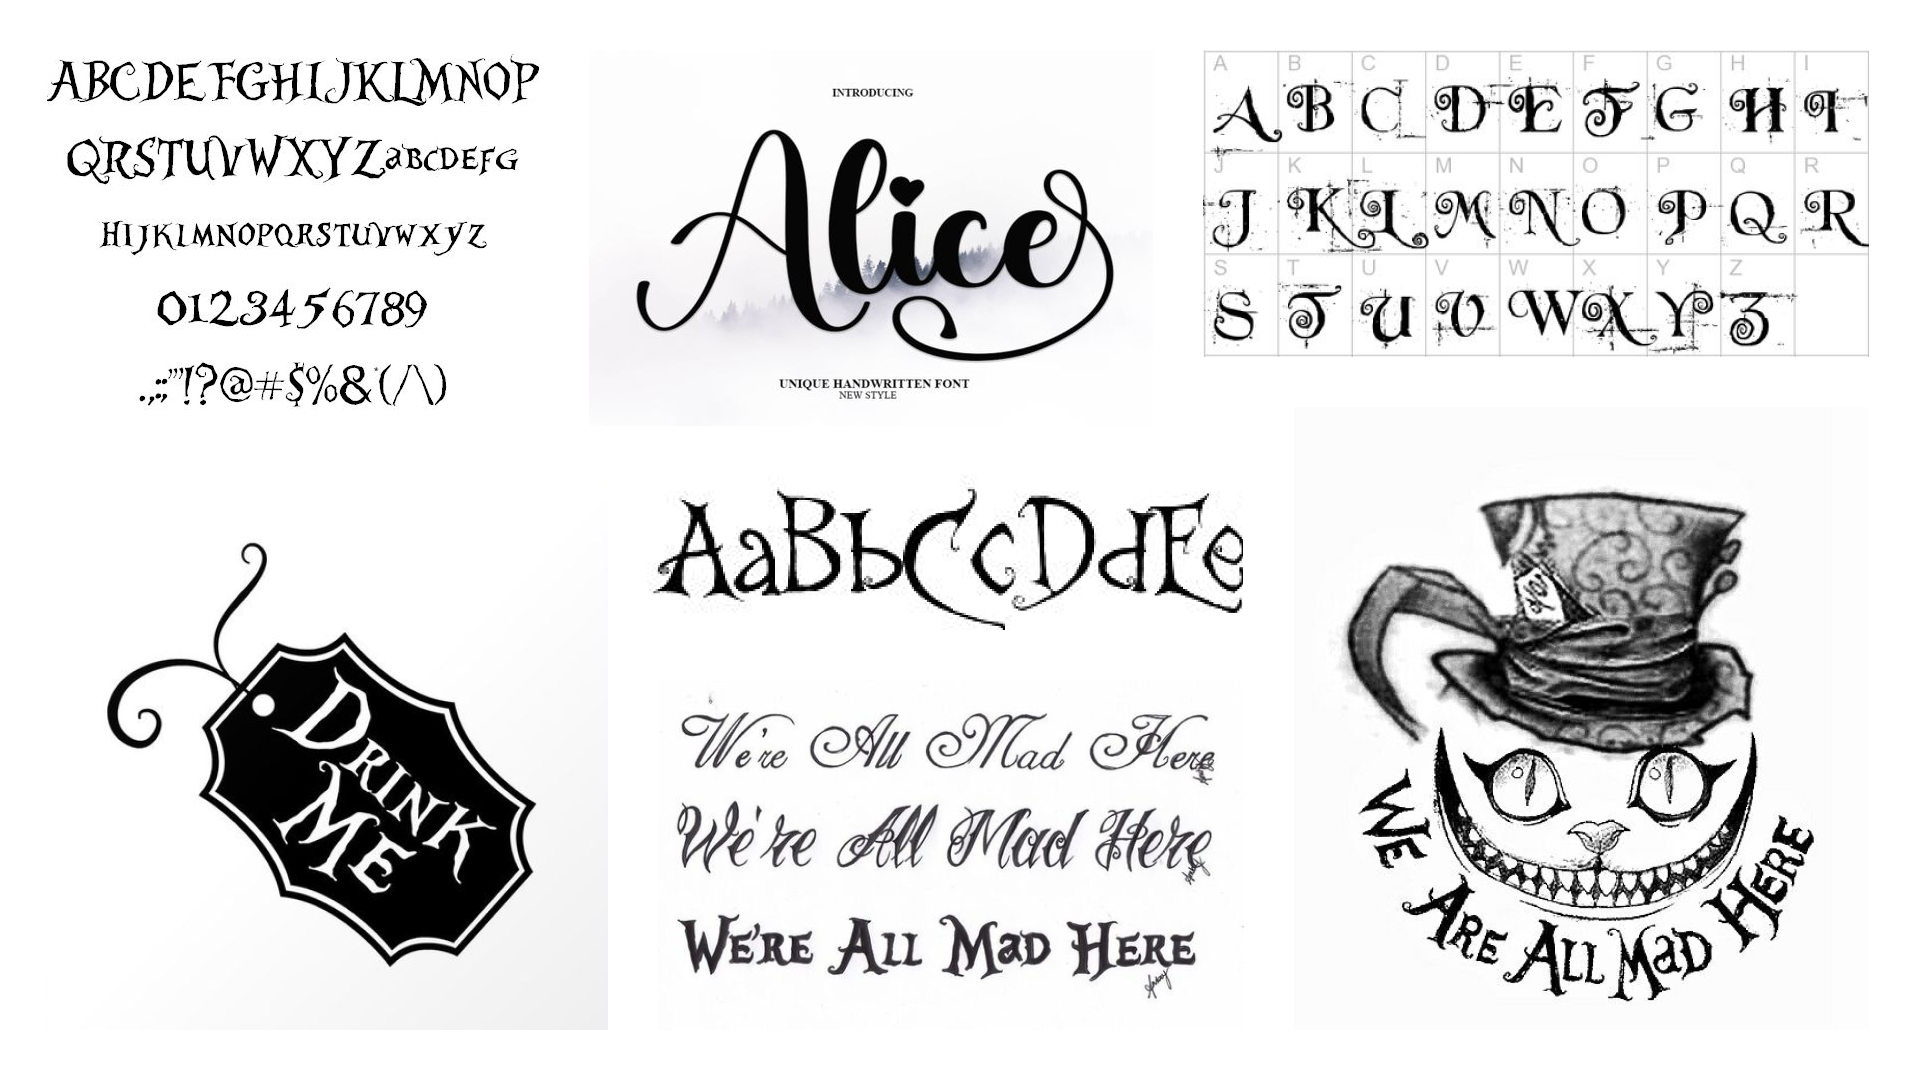 ABCDEFGHIJKLMNOP
QRSTUVWXYZaBCDEFG
HIJKLMNOPQRSTUVWXYZ
0123456789
.,:;'"!?@#$%&*(/\)
INTRODUCING
Alice
UNIQUE HANDWRITTEN FONT
NEW STYLE
A B C D E F G H I
A B C D E F G H I
J K L M N O P Q R
J K L M N O P Q R
S T U V W X Y Z
S T U V W X Y Z
DRINK
ME
AaBbCcDdEe
We're All Mad Here
We're All Mad Here
WE'RE ALL MaD HERE
WE ARE ALL MaD HERE